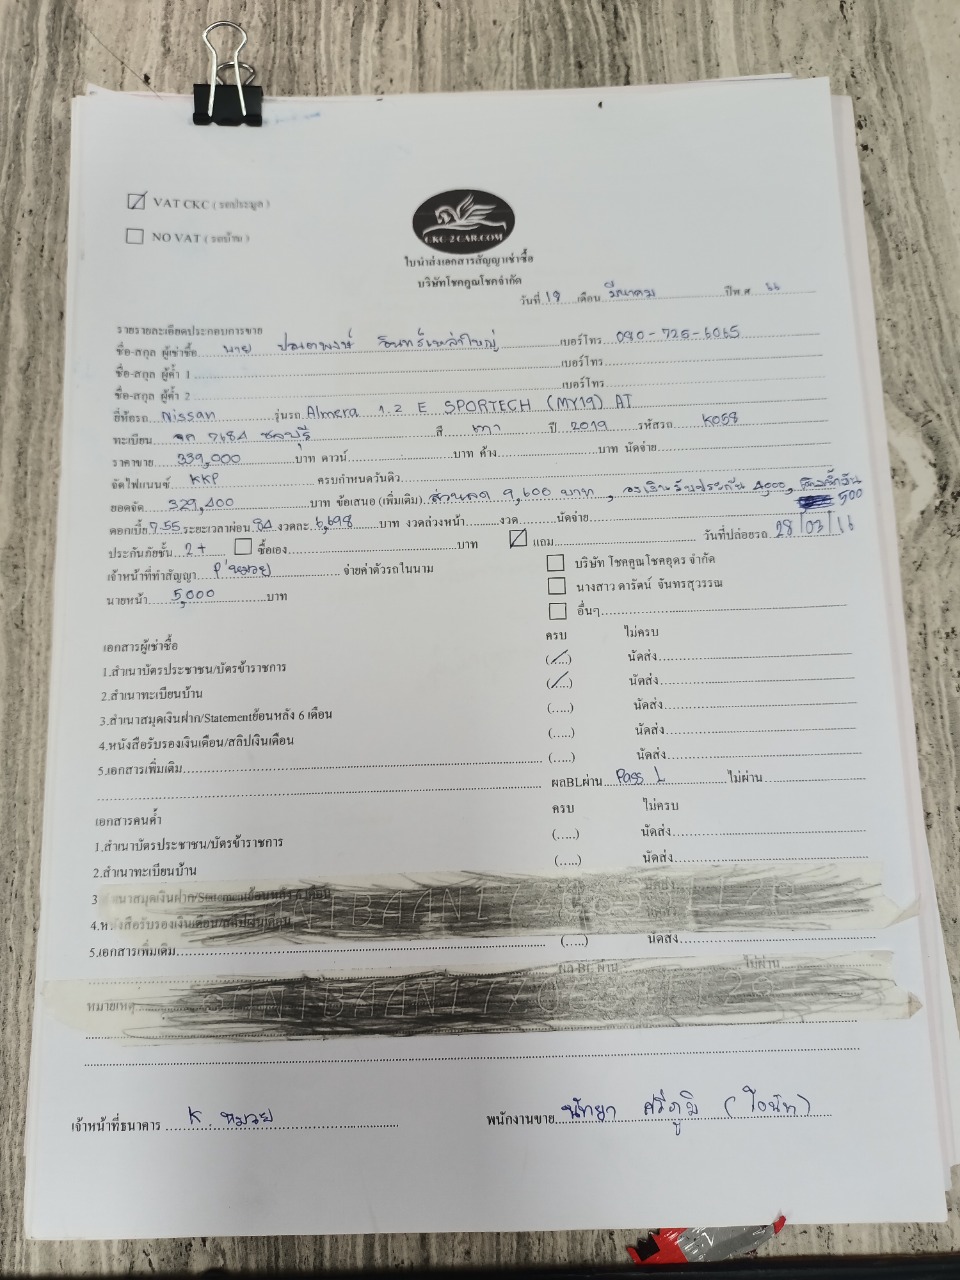 VAT CKC ( รถประมูล )
NO VAT ( รถบ้าน )
CKC-2 CAR.COM
ใบนำส่งเอกสารสัญญาเช่าซื้อ
บริษัทโชคคูณโชคจำกัด
วันที่ 19 เดือน มีนาคม ปีพ.ศ 66
รายรายละเอียดประกอบการขาย
ชื่อ-สกุล ผู้เช่าซื้อ นาย เบอร์โทร 080-725-6065
ชื่อ-สกุล ผู้ค้ำ 1 เบอร์โทร
ชื่อ-สกุล ผู้ค้ำ 2 เบอร์โทร
ยี่ห้อรถ Nissan รุ่นรถ Almera 1.2 E SPORTECH (MY19) AT
ทะเบียน 7684 ชลบุรี สี เทา ปี 2019 รหัสรถ K058
ราคาขาย 339,000 บาท ดาวน์ บาท ค้าง บาท นัดจ่าย
จัดไฟแนนซ์ KKP ครบกำหนดวันดิว
ยอดจัด 329,400 บาท ข้อเสนอ (เพิ่มเติม) ส่วนลด 9,600 บาท , 4,000,
500
ดอกเบี้ย 7.55 ระยะเวลาผ่อน 84 งวดละ 6,698 บาท งวดล่วงหน้า งวด นัดจ่าย
ประกันภัยชั้น 2+ ซื้อเอง บาท แถม วันที่ปล่อยรถ 28/03/66
เจ้าหน้าที่ทำสัญญา P'หมวย จ่ายค่าตัวรถในนาม บริษัท โชคคูณโชคอุดร จำกัด
นายหน้า 5,000 บาท นางสาว ดารัตน์ จันทรสุวรรณ
อื่นๆ
เอกสารผู้เช่าซื้อ ครบ ไม่ครบ
1.สำเนาบัตรประชาชน/บัตรข้าราชการ (/) นัดส่ง
2.สำเนาทะเบียนบ้าน (/) นัดส่ง
3.สำเนาสมุดเงินฝาก/Statementย้อนหลัง 6 เดือน (.....) นัดส่ง
4.หนังสือรับรองเงินเดือน/สลิปเงินเดือน (.....) นัดส่ง
5.เอกสารเพิ่มเติม (.....) นัดส่ง
ผลBLผ่าน Pass L ไม่ผ่าน
เอกสารคนค้ำ ครบ ไม่ครบ
1.สำเนาบัตรประชาชน/บัตรข้าราชการ (.....) นัดส่ง
2.สำเนาทะเบียนบ้าน (.....) นัดส่ง
3 สำเนาสมุดเงินฝาก/Statementย้อนหลัง 6 เดือน นัดส่ง
4.หนังสือรับรองเงินเดือน/สลิปเงินเดือน
5.เอกสารเพิ่มเติม (.....) นัดส่ง
ผล BL ผ่าน ไม่ผ่าน
หมายเหตุ
เจ้าหน้าที่ธนาคาร K. หมวย พนักงานขาย นัทยา ศรีภูมิ